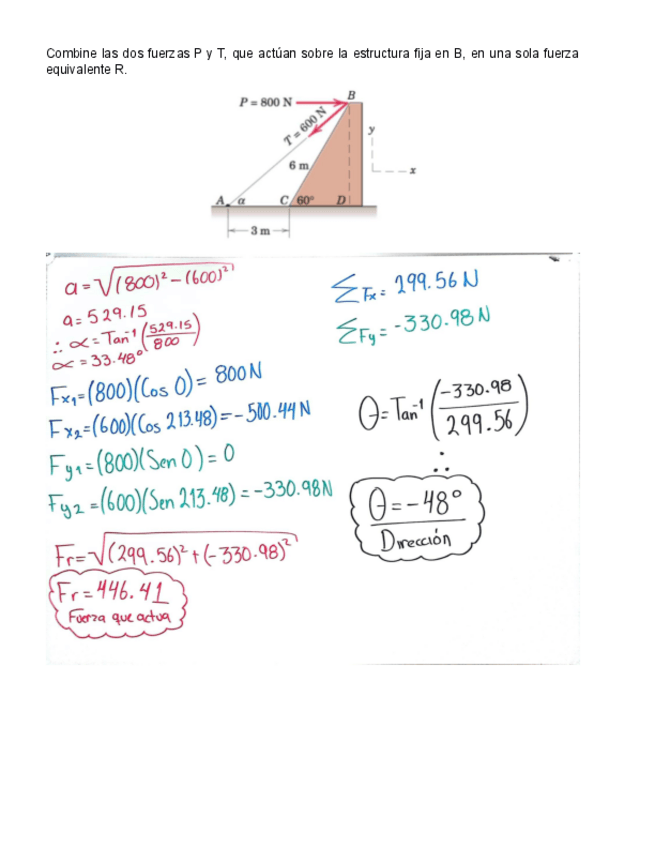 Combine las dos fuerzas P y T, que actúan sobre la estructura fija en B, en una sola fuerza
equivalente R.
P = 800 N
B
T = 600 N
y
6 m
x
A
α
C
60°
D
3 m
a = √(800)² - (600)²
a = 529.15
∴ α = Tan⁻¹ (529.15/800)
α = 33.48°
Fx₁ = (800)(Cos 0) = 800 N
Fx₂ = (600)(Cos 213.48) = -500.44 N
Fy₁ = (800)(Sen 0) = 0
Fy₂ = (600)(Sen 213.48) = -330.98 N
Fr = √(299.56)² + (-330.98)²
Fr = 446.41
Fuerza que actua
ΣFx = 299.56 N
ΣFy = -330.98 N
θ = Tan⁻¹ (-330.98/299.56)
∴
θ = -48°
Dirección